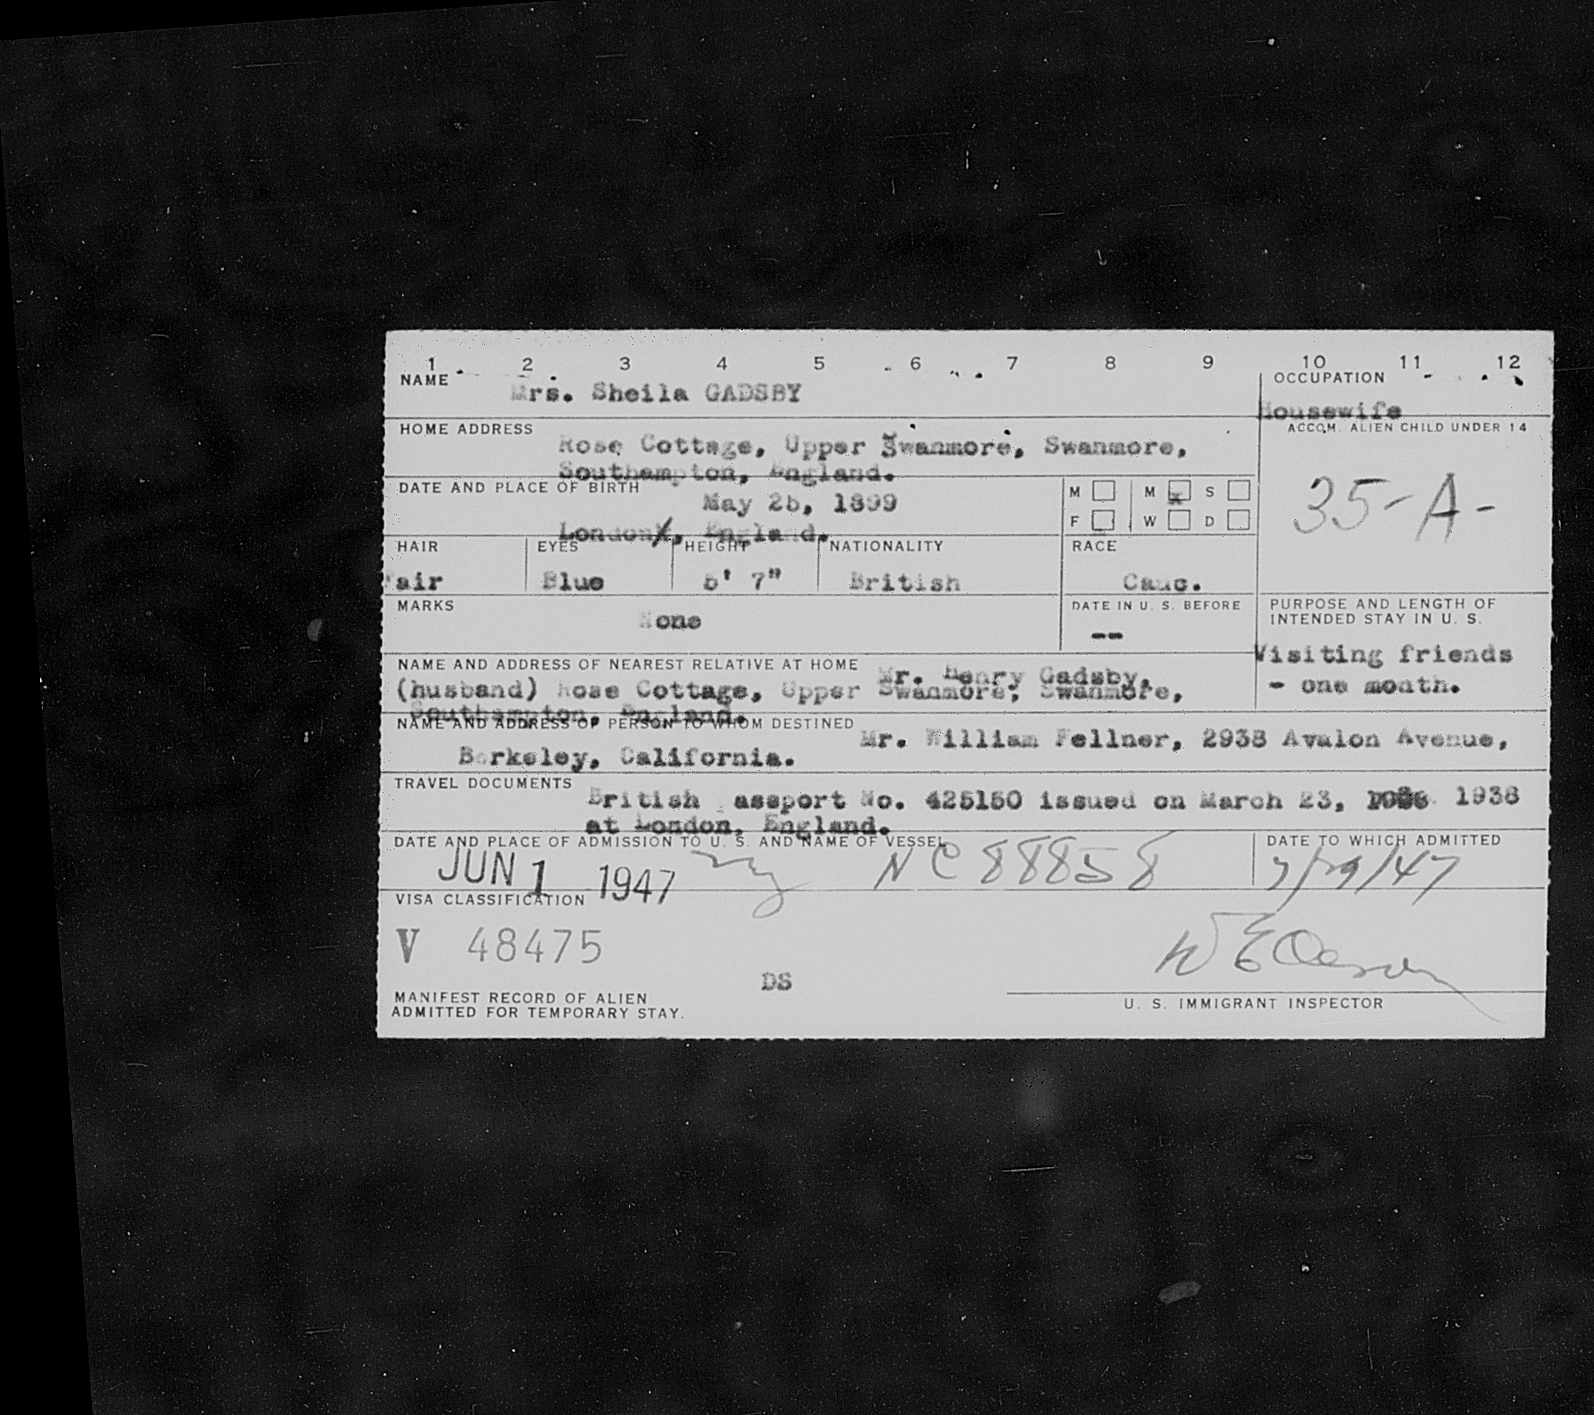 1 2 3 4 5 6 7 8 9 10 11 12
NAME Mrs. Sheila GADSBY
OCCUPATION
Housewife
HOME ADDRESS Rose Cottage, Upper Swanmore, Swanmore,
Southampton, England.
ACCOM. ALIEN CHILD UNDER 14
35-A-
DATE AND PLACE OF BIRTH May 25, 1899
London, England.
M M x S
F W D
HAIR EYES HEIGHT NATIONALITY RACE
Fair Blue 5' 7" British Cauc.
MARKS None
DATE IN U. S. BEFORE
--
PURPOSE AND LENGTH OF
INTENDED STAY IN U. S.
Visiting friends
- one month.
NAME AND ADDRESS OF NEAREST RELATIVE AT HOME Mr. Henry Gadsby,
(husband) Rose Cottage, Upper Swanmore, Swanmore,
Southampton, England.
NAME AND ADDRESS OF PERSON TO WHOM DESTINED Mr. William Fellner, 2938 Avalon Avenue,
Berkeley, California.
TRAVEL DOCUMENTS British Passport No. 425150 issued on March 23, 1938
at London, England.
DATE AND PLACE OF ADMISSION TO U. S. AND NAME OF VESSEL
JUN 1 1947 ny NC 88858
DATE TO WHICH ADMITTED
7/29/47
VISA CLASSIFICATION
V 48475
DS
MANIFEST RECORD OF ALIEN
ADMITTED FOR TEMPORARY STAY.
U. S. IMMIGRANT INSPECTOR